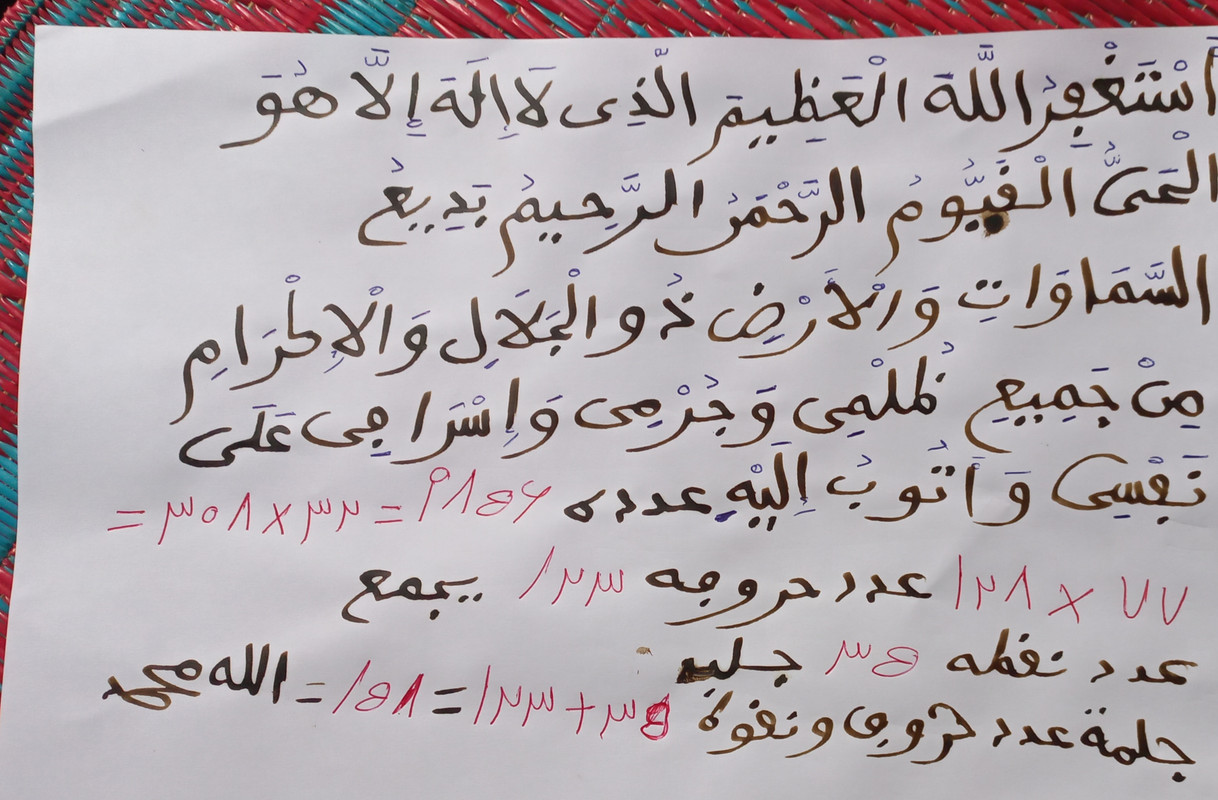 أَسْتَغْفِرُ اللَّهَ الْعَظِيمَ الَّذِى لَا إِلَهَ إِلَّا هُوَ
الْحَىُّ الْقَيُّومُ الرَّحْمَنُ الرَّحِيمُ بَدِيعُ
السَّمَاوَاتِ وَالْأَرْضِ ذُو الْجَلَالِ وَالْإِكْرَامِ
مِنْ جَمِيعِ ظُلْمِى وَجُرْمِى وَإِسْرَافِى عَلَى
نَفْسِى وَأَتُوبُ إِلَيْهِ عدده ٩٨٥٦ = ٣٢ × ٣٠٨ =
٧٧ × ١٢٨ عدد حروفه ١٢٣ يجمع
عدد نقطه ٣٥
جلمة عدد حروف ٣٥ + ١٢٣ = ١٥٨ = الله محمد